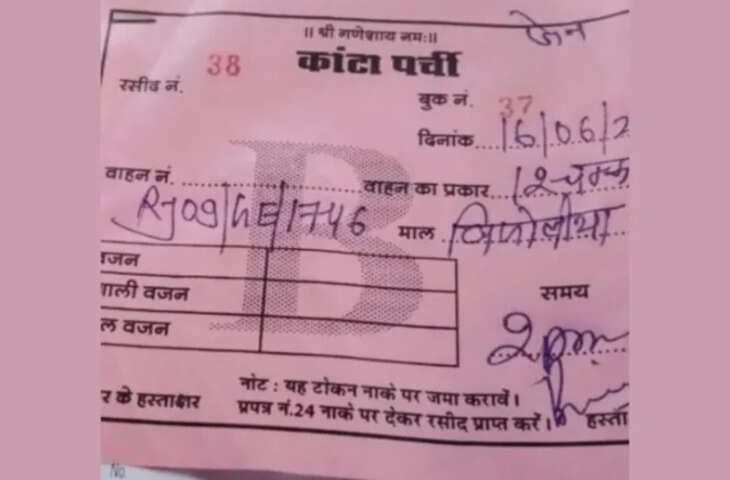 जैन
॥ श्री गणेशाय नमः॥
कांटा पर्ची
रसीद नं. 38
बुक नं. 37
दिनांक 16/06/2
वाहन नं. RJ09/GE/1746
वाहन का प्रकार 12 चक्का
माल बिजोलीया
वजन
ाली वजन
ल वजन
समय
2 pm
र के हस्ताक्षर
नोट : यह टोकन नाके पर जमा करावें।
प्रपत्र नं.24 नाके पर देकर रसीद प्राप्त करें।
हस्ता
No